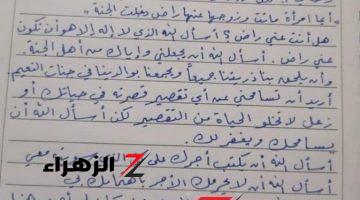 "أيما امرأة ماتت وزوجها عنها راض دخلت الجنة".
هل أنت عني راض؟ أسأل الله الذي لا إله إلا هو أن تكون
عني راض. أسأل الله أن يجعلني وإياك من أهل الجنة.
وأن يلحق بنا ذريتنا جميعاً ويجمعنا بوالدينا في جنات النعيم.
أريد أن تسامحني عن أي تقصير قصرته في حياتك أو
زعل لا تخلو الحياة من التقصير لكن أسأل الله أن
يسامحك ويغفر لك.
أسأل الله أن يكتب أجرك على معي
أسأل الله أن لا يحرمك الأجر باهتمامك في
الزهراء